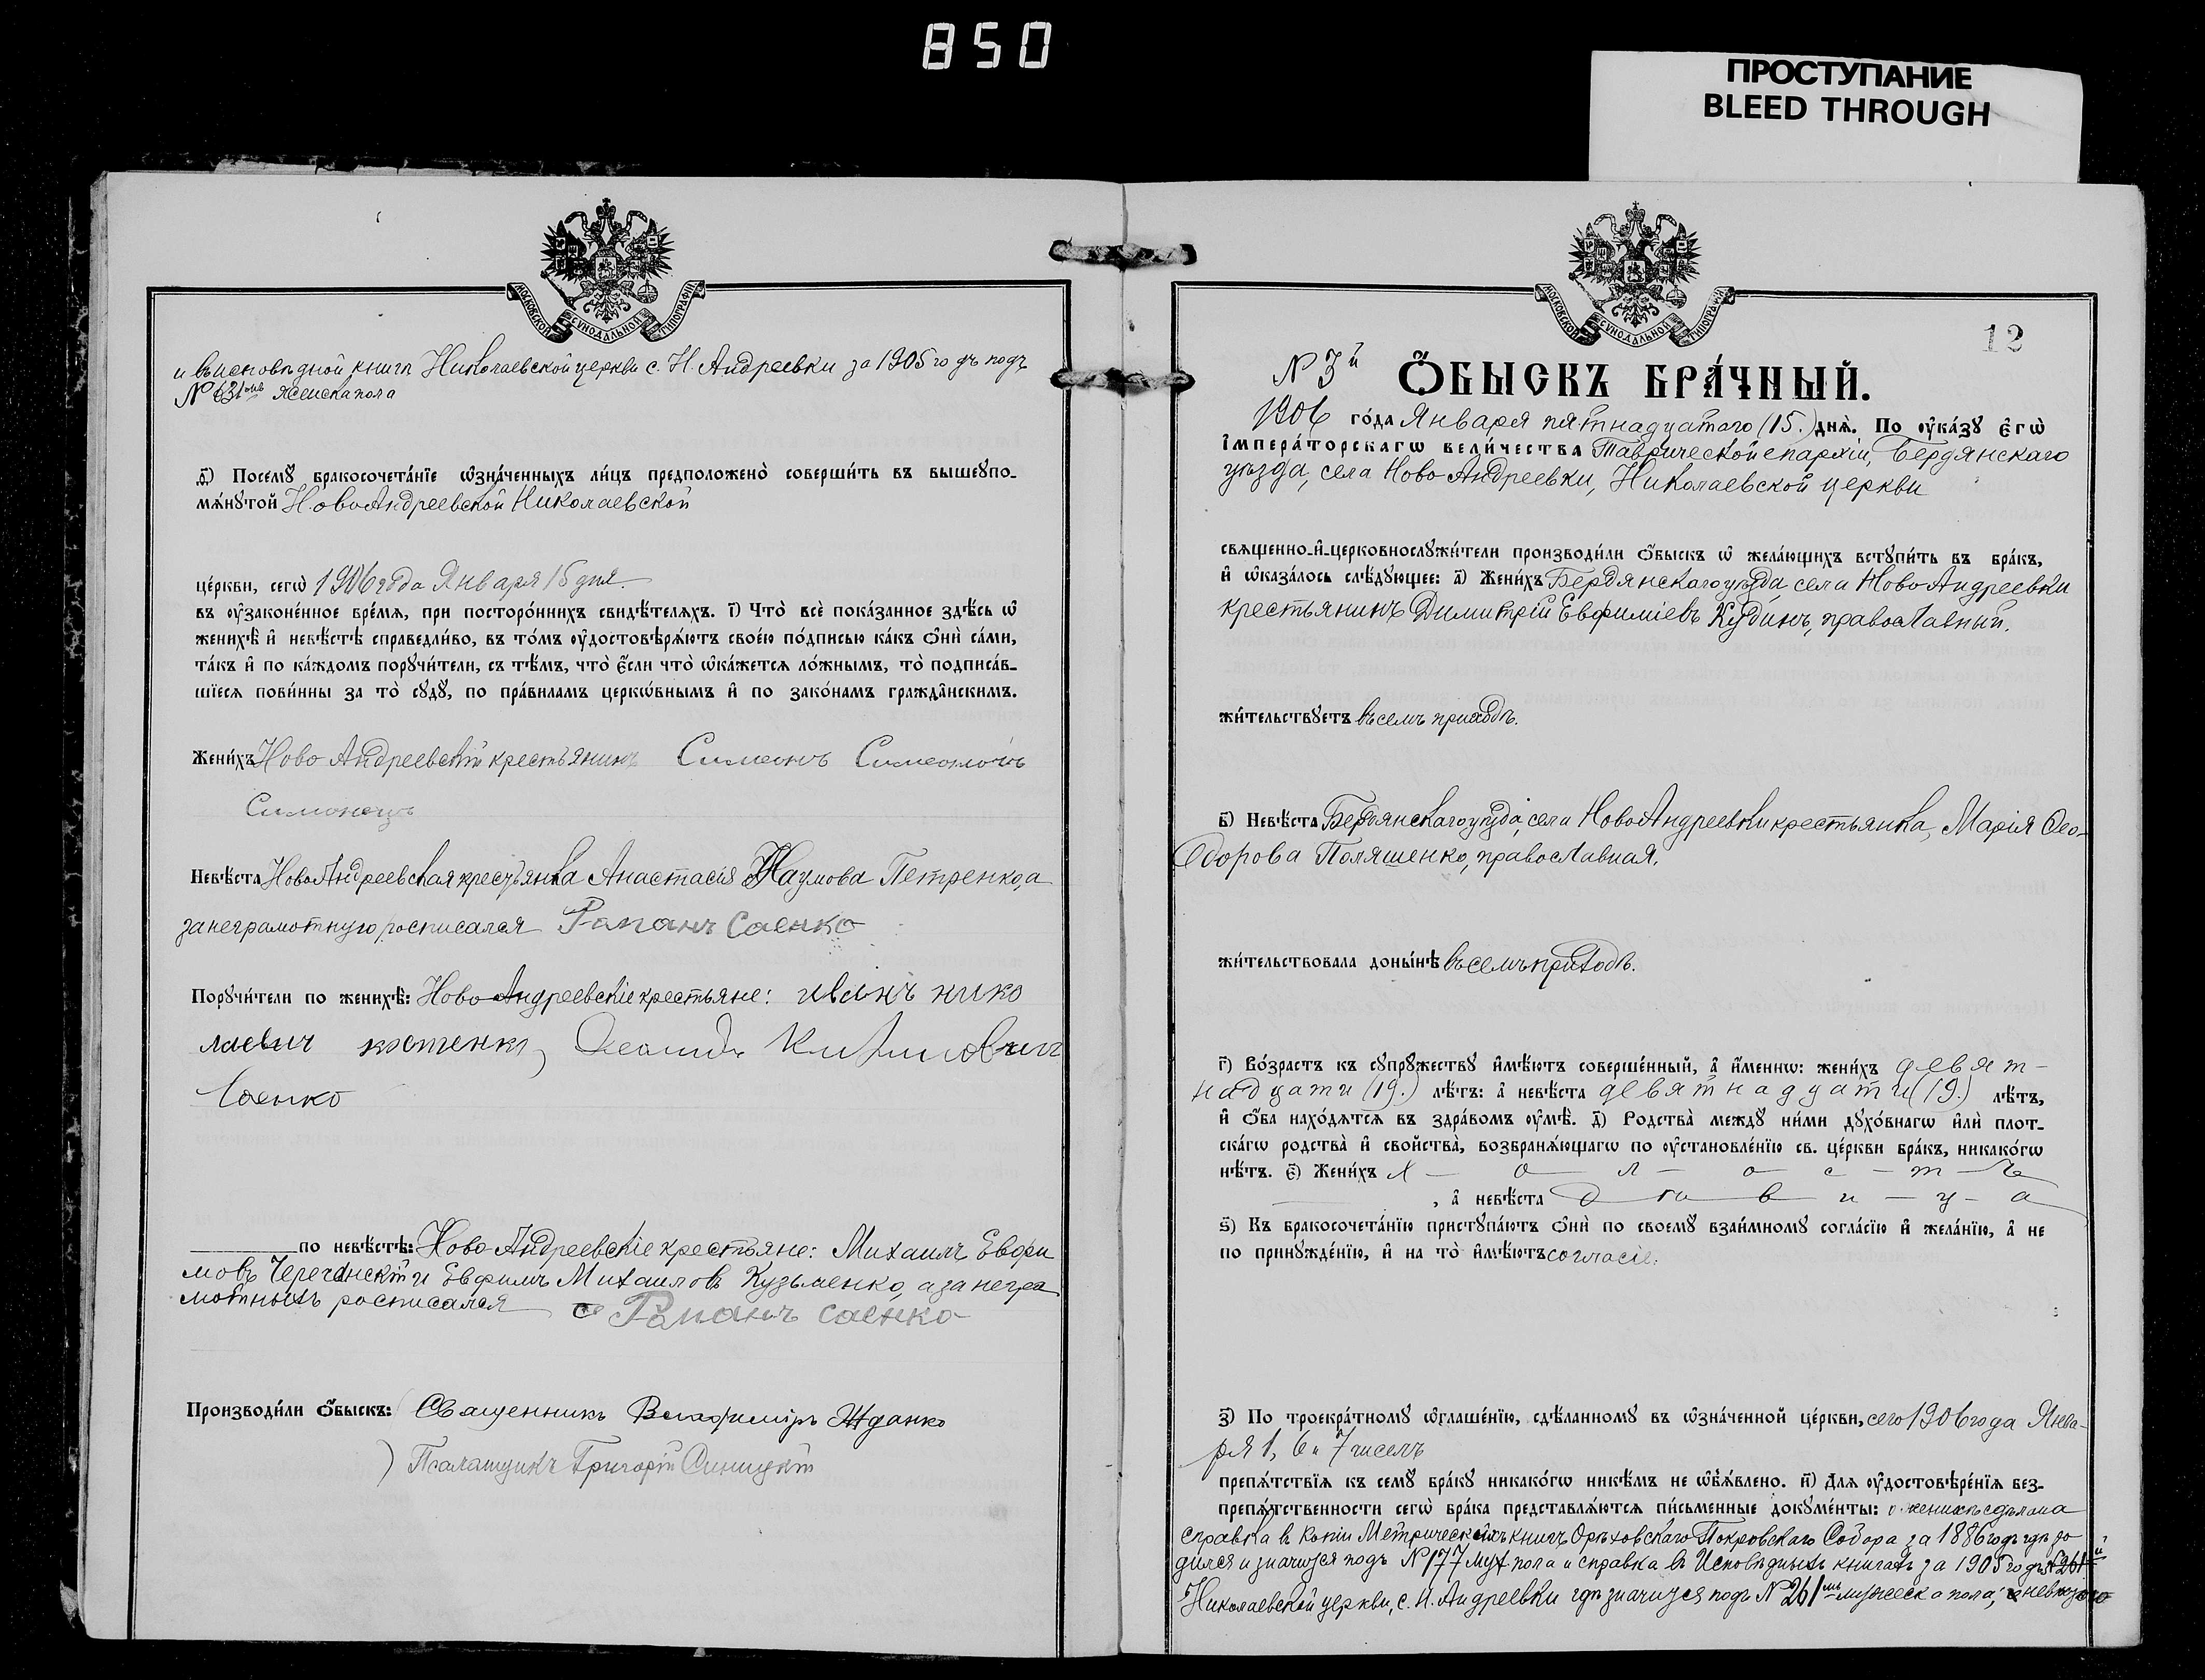 850
ПРОСТУПАНИЕ
BLEED THROUGH
МОСКОВСКОЙ СѴНОДАЛЬНОЙ ТИПОГРАФІИ
и въ исповѣдной книгѣ Николаевской церкви с. Н. Андреевки за 1905 годъ подъ
№ 631 женска пола
д҃) Посемꙋ̀ бракосочета́нїе ѡ҆зна́ченныхъ ли́цъ предположено̀ соверши́ть въ вышеꙋпо-
мѧ́нꙋтой НовоАндреевской Николаевской
це́ркви, сегѡ̀ 1906 года Января 15 дня
въ ᲂу҆законе́нное вре́мѧ, при посторо́ннихъ свидѣ́телѧхъ. і҃) Что̀ всѐ пока́занное здѣ́сь ѡ҆
женихѣ̀ и҆ невѣ́стѣ справедли́во, въ то́мъ ᲂу҆достовѣрѧ́ютъ свое́ю по́дписью ка́къ ѻ҆нѝ са́ми,
та́къ и҆ по ка́ждомъ порꙋчи́тели, съ тѣ́мъ, что̀ є҆́сли что̀ ѡ҆ка́жетсѧ ло́жнымъ, то̀ подписа́в-
шїесѧ пови́нны за то̀ сꙋдꙋ̀, по пра́виламъ церкѡ́внымъ и҆ по зако́намъ гражда̂нскимъ.
Жени́хъ Ново Андреевскій крестьянинъ Симеонъ Симеоновичъ
Симонецъ
Невѣ́ста НовоАндреевская крестьянка Анастасія Наумова Петренко, а
за неграмотную росписался Раманъ Саенко
Порꙋчи́тели по женихѣ̀: Ново-Андреевскіе крестьяне: иванъ нико
лаевич костенко, Саенко
по невѣ́стѣ: Ново Андреевскіе крестьяне: Михаилъ Евфи
мовъ и Евфимъ Михаиловъ Кузьменко, а за негра
мотныхъ росписался Раманъ саенко
Производи́ли ѻ҆́быскъ: Священникъ Владиміръ Жданко
Псаломщикъ Григорій Синицкій
МОСКОВСКОЙ СѴНОДАЛЬНОЙ ТИПОГРАФІИ
12
№ 3й Ѻ҆́БЫСКЪ БРА́ЧНЫЙ.
1906 го́да Января пятнадцатого (15.) днѧ̀. По ᲂу҆ка́зꙋ є҆гѡ̀
и҆мпера́торскагѡ вели́чества Таврической епархіи, Бердянскаго
уѣзда, села Ново Андреевки, Николаевской церкви
свѧщенно-и҆-церковнослꙋжи́тели производи́ли ѻ҆́быскъ ѡ҆ жела́ющихъ вступи́ть въ бра́къ,
и҆ ѡ҆каза́лось слѣ́дꙋющее: а҃) Жени́хъ Бердянскаго уѣзда села Ново Андреевки
крестьянинъ Димитрій Евфиміевъ Кудинъ, православный.
жи́тельствꙋетъ въ семъ приходѣ.
в҃) Невѣ́ста Бердянскаго уѣзда, села НовоАндреевки крестьянка, Марія Ѳео-
дорова Поляшенко, православная.
жи́тельствовала доны́нѣ въ семъ приходѣ.
г҃) Во́зрастъ къ сꙋпрꙋ́жествꙋ и҆мѣ́ютъ соверше́нный, а҆ и҆́меннѡ: жени́хъ девят-
надцати (19.) лѣ́тъ: а҆ невѣ́ста девятнадцати (19.) лѣ́тъ,
и҆ ѻ҆́ба нахо́дѧтсѧ въ здра́вомъ ᲂу҆мѣ̀. д҃) Родства̀ междꙋ̀ ни́ми дꙋхо́внагѡ и҆лѝ плот-
ска́гѡ родства̀ и҆ сво́йства, возбранѧ́ющагѡ по ᲂу҆становле́нїю св. це́ркви бра́къ, никако́гѡ
нѣ́тъ. є҃) Жени́хъ х о л о с т ъ
, а҆ невѣ́ста д ѣ в и ц а
ѕ҃) Къ бракосочета́нїю пристꙋпа́ютъ ѻ҆нѝ по своемꙋ̀ взаи́мномꙋ согла́сїю и҆ жела́нїю, а҆ не
по принꙋжде́нїю, и҆ на то̀ и҆мѣ́ютъ согласіе.
з҃) По троекра́тномꙋ ѡ҆глаше́нїю, сдѣ́ланномꙋ въ ѡ҆зна́ченной це́ркви, сего 1906 года Янва-
ря 1, 6 и 7 чиселъ
препѧ́тствїѧ къ семꙋ̀ бра́кꙋ никако́гѡ никѣ́мъ не ѡ҆б̾ѧ́влено. и҃) Длѧ ᲂу҆достовѣре́нїѧ без-
препѧ́тственности сегѡ̀ бра́ка представлѧ́ютсѧ пи́сьменные докꙋме́нты: о женихѣ сдѣлана
справка въ копіи Метрическихъ книгъ Орѣховскаго Покровскаго Собора за 1886 годъ гдѣ ро
дился и значится подъ № 177 муж пола и справка въ Исповѣдныхъ книгахъ за 1905 годъ № 261й
Николаевской церкви, с. Н. Андреевки гдѣ значится подъ № 261мъ мужеска пола,